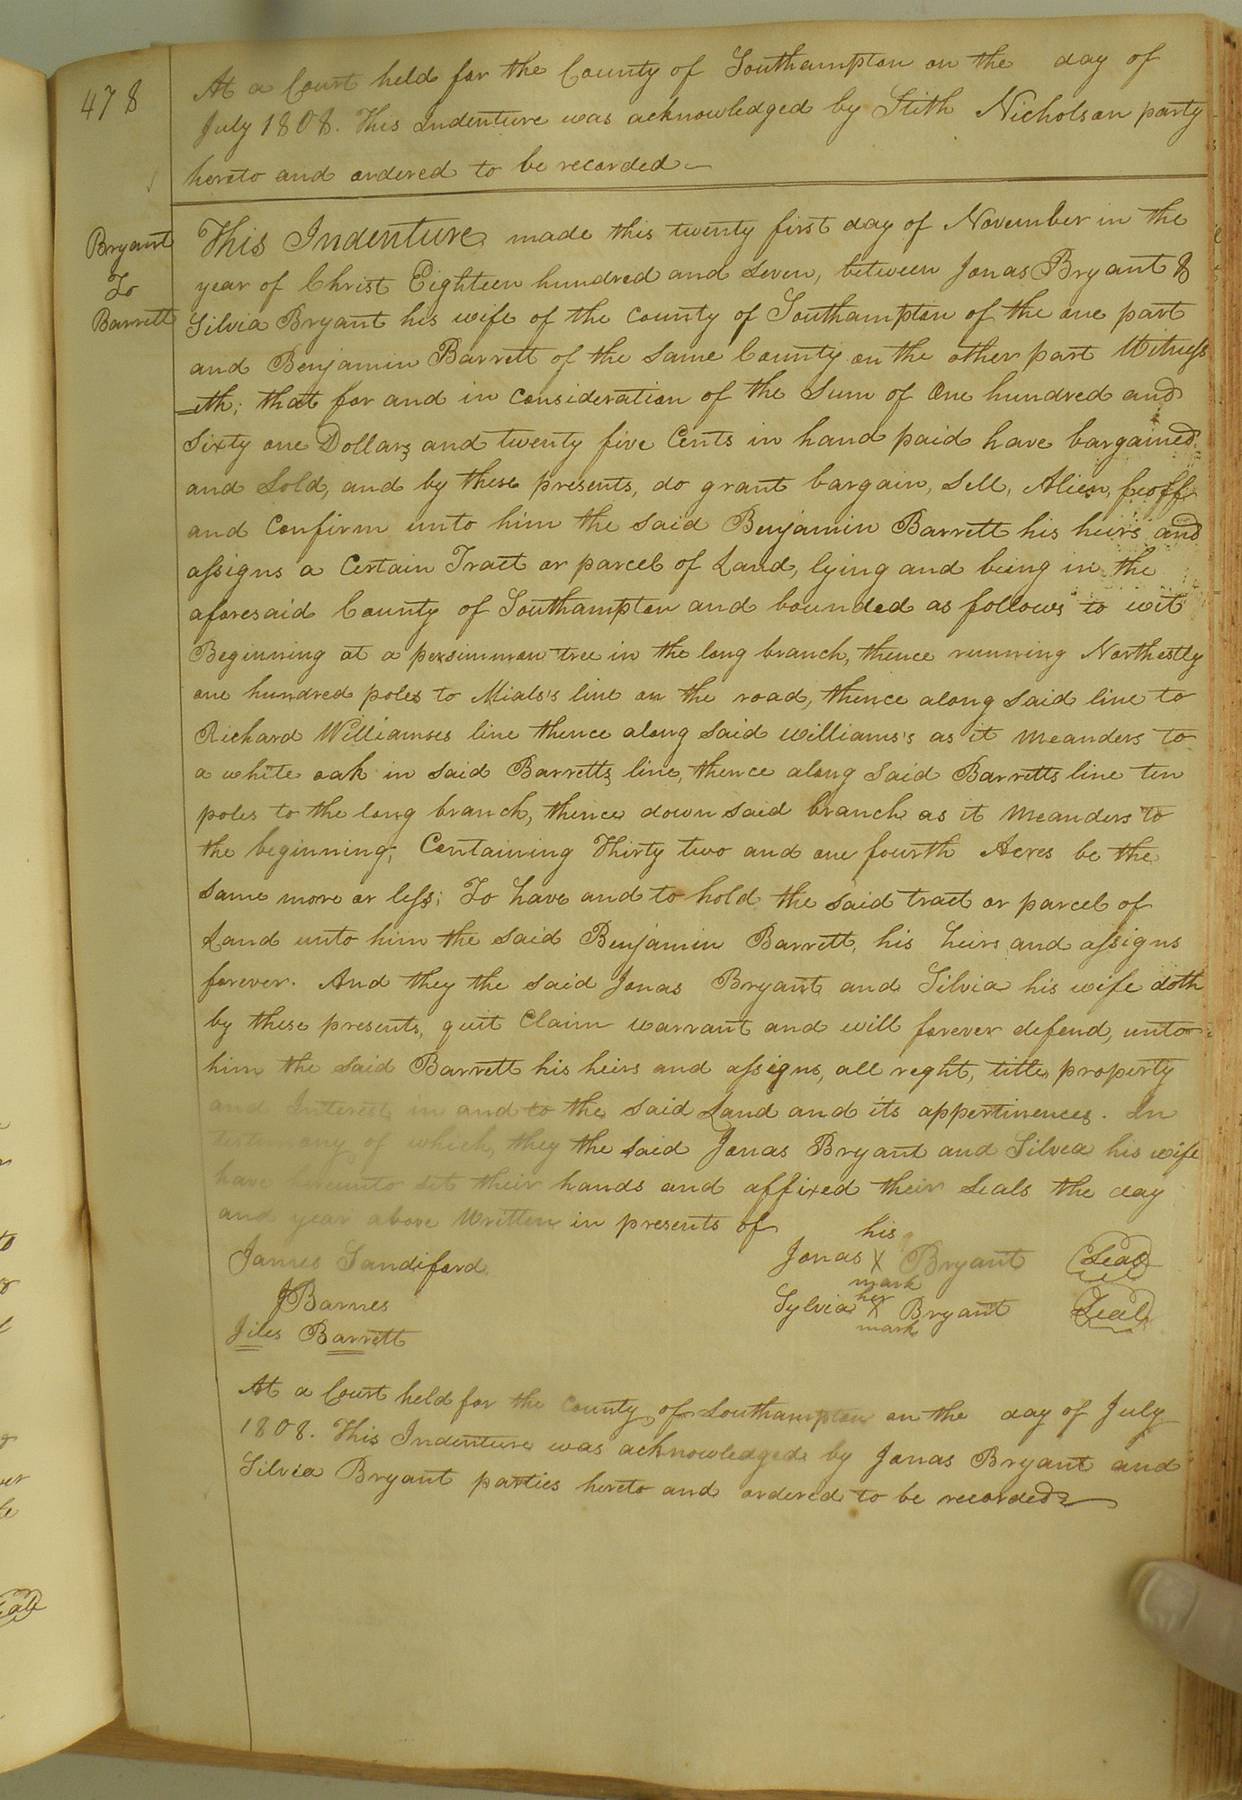 478
At a Court held for the County of Southampton on the day of
July 1808. This Indenture was acknowledged by Stith Nicholson party
hereto and ordered to be recorded
Bryant
To
Barrett
This Indenture made this twenty first day of November in the
year of Christ Eighteen hundred and Seven, between Jonas Bryant &
Silvia Bryant his wife of the County of Southampton of the one part
and Benjamin Barrett of the Same County on the other part Witness
eth; that for and in Consideration of the Sum of One hundred and
Sixty one Dollars and twenty five Cents in hand paid have bargained
and Sold, and by these presents, do grant bargain, Sell, Alien, feoff
and Confirm unto him the said Benjamin Barrett his heirs and
assigns a Certain Tract or parcel of Land, lying and being in the
aforesaid County of Southampton and bounded as follows to wit
Beginning at a persimmon tree in the long branch, thence running Northestly
one hundred poles to Mials's line on the road, thence along said line to
Richard Williamses line thence along said williams's as it meanders to
a white oak in said Barretts line, thence along Said Barretts line ten
poles to the long branch, thence down said branch as it meanders to
the beginning; Containing Thirty two and one fourth Acres be the
Same more or less; To have and to hold the said tract or parcel of
Land unto him the said Benjamin Barrett, his heirs and assigns
forever. And they the said Jonas Bryant and Silvia his wife doth
by these presents, quit Claim warrant and will forever defend, unto
him the said Barrett his heirs and assigns, all reght, title, property
and Interest in and to the said Land and its appertinences. In
testimony of which, they the said Jonas Bryant and Silvia his wife
have hereunto set their hands and affixed their Seals the day
and year above Written in presents of
James Sandiford
JBarnes
Jiles Barrett
his
Jonas X Bryant Seal
mark
her
Sylvia X Bryant Seal
mark
At a Court held for the County of Southampton on the day of July
1808. This Indenture was acknowledged by Jonas Bryant and
Silvia Bryant parties hereto and ordered to be recorded